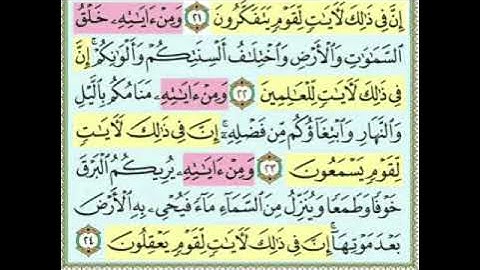 إِنَّ فِي ذَٰلِكَ لَآيَاتٍ لِّقَوْمٍ يَتَفَكَّرُونَ ٢١ وَمِنْ ءَايَـٰتِهِۦ خَلْقُ
السَّمَـٰوَٰتِ وَالْأَرْضِ وَاخْتِلَـٰفُ أَلْسِنَتِكُمْ وَأَلْوَٰنِكُمْ ۚ إِنَّ
فِي ذَٰلِكَ لَآيَـٰتٍ لِّلْعَـٰلِمِينَ ٢٢ وَمِنْ ءَايَـٰتِهِۦ مَنَامُكُم بِالَّيْلِ
وَالنَّهَارِ وَابْتِغَاؤُكُم مِّن فَضْلِهِۦٓ ۚ إِنَّ فِي ذَٰلِكَ لَآيَـٰتٍ
لِّقَوْمٍ يَسْمَعُونَ ٢٣ وَمِنْ ءَايَـٰتِهِۦ يُرِيكُمُ الْبَرْقَ
خَوْفًا وَطَمَعًا وَيُنَزِّلُ مِنَ السَّمَآءِ مَآءً فَيُحْيِۦ بِهِ الْأَرْضَ
بَعْدَ مَوْتِهَآ ۚ إِنَّ فِي ذَٰلِكَ لَآيَـٰتٍ لِّقَوْمٍ يَعْقِلُونَ ٢٤